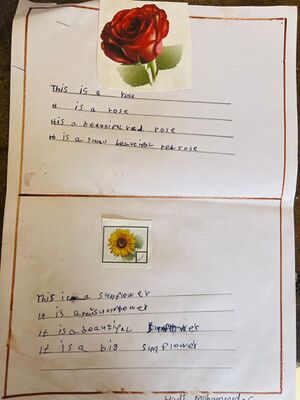 This is a rose
It is a rose
It is a beautiful red rose
It is a small beautiful red rose
This is a sunflower
It is a sunflower
It is a beautiful sunflower
It is a big sunflower
Hadi Mohammed. C